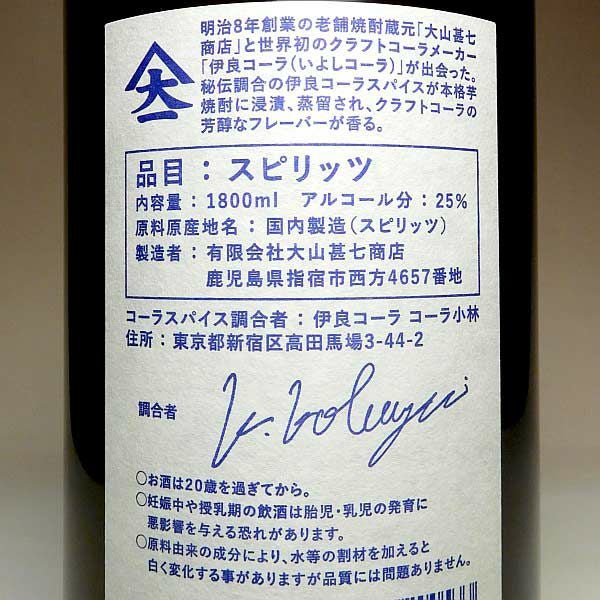 明治8年創業の老舗焼酎蔵元「大山甚七
商店」と世界初のクラフトコーラメーカー
「伊良コーラ(いよしコーラ)」が出会った。
秘伝調合の伊良コーラスパイスが本格芋
焼酎に浸漬、蒸留され、クラフトコーラの
芳醇なフレーバーが香る。
大
品目：スピリッツ
内容量：1800ml アルコール分：25%
原料原産地名：国内製造(スピリッツ)
製造者：有限会社大山甚七商店
鹿児島県指宿市西方4657番地
コーラスパイス調合者：伊良コーラ コーラ小林
住所：東京都新宿区高田馬場3-44-2
調合者
○お酒は20歳を過ぎてから。
○妊娠中や授乳期の飲酒は胎児・乳児の発育に
悪影響を与える恐れがあります。
○原料由来の成分により、水等の割材を加えると
白く変化する事がありますが品質には問題ありません。